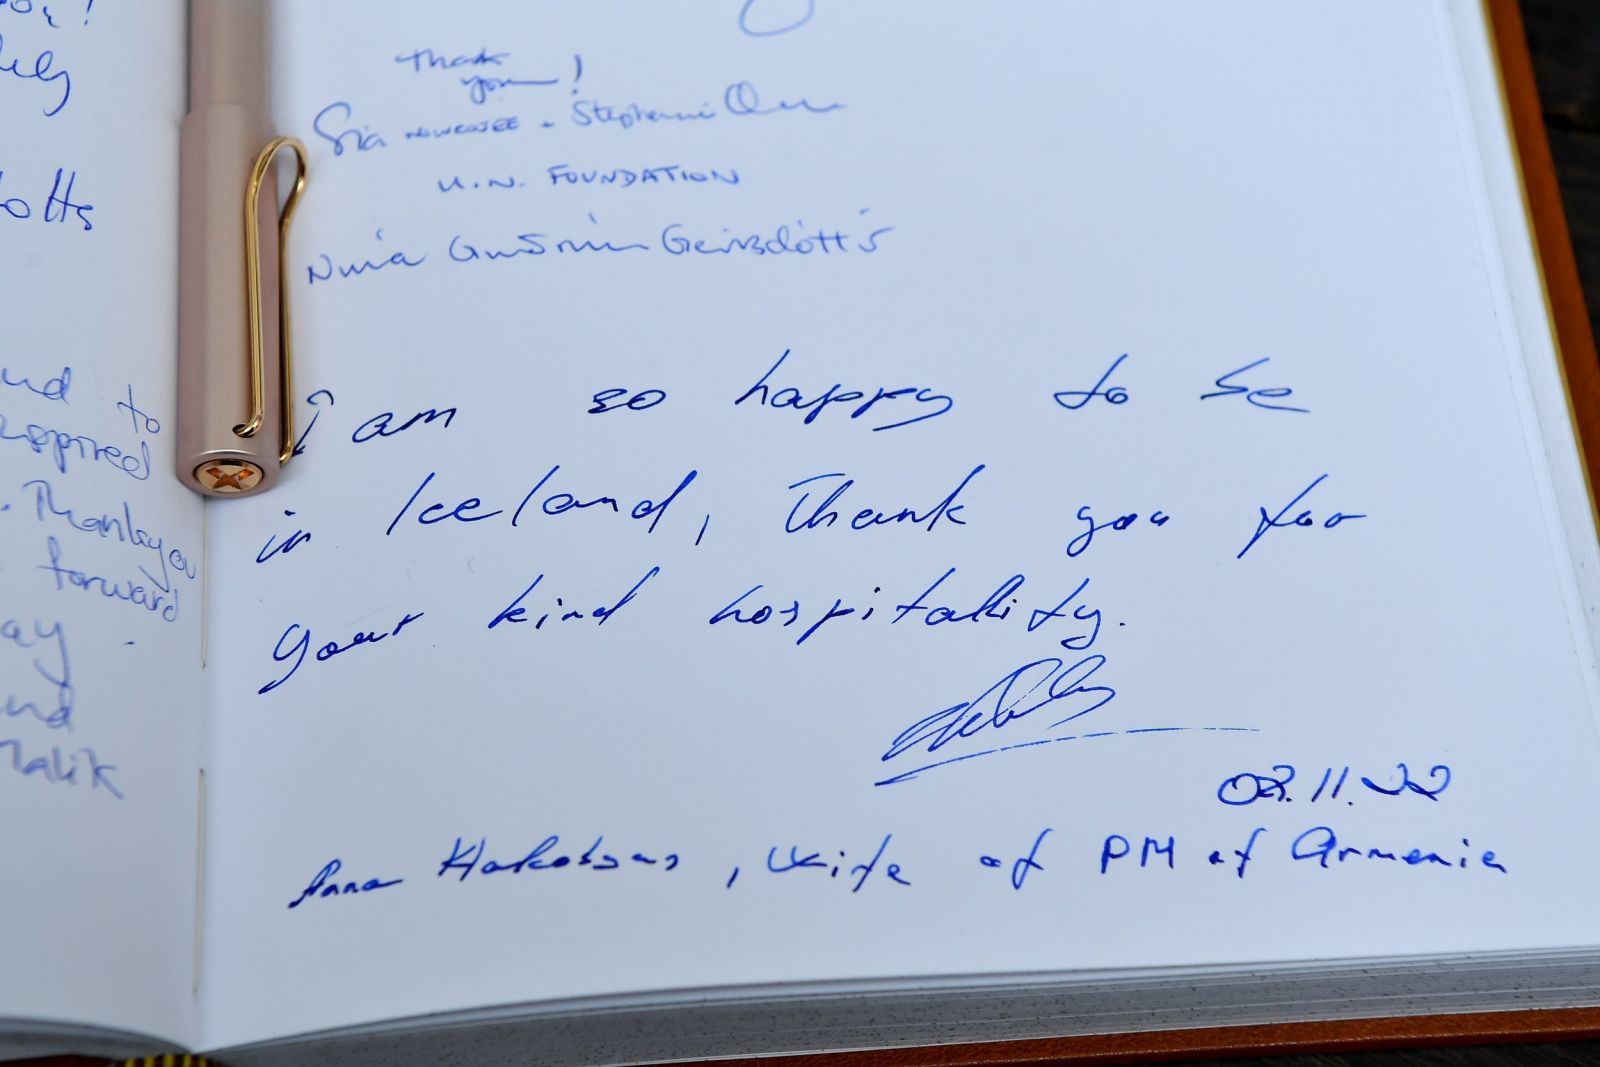 and to
Thankyou
forward
Malik
Thank
you!
Sia Nowrojee - Stephanie
U.N. FOUNDATION
Guðrún Geirsdóttir
I am so happy to be
in Iceland, Thank you for
your kind hospitality.
02.11.22
Anna Hakobyan, wife of PM of Armenia